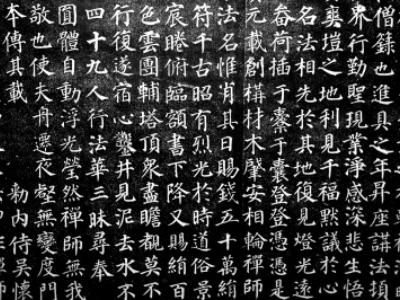 僧籙也進具之年昇座講法頓
界行勤聖現業淨感深悲生悟
爽塏之地利見千福默議於心
名法相先於其地復見燈光遠
畚荷插于橐于囊登登憑憑是
元載創構材木肇安相輪禪師
法名惟肖其日賜錢五十萬絹
符千古昭有烈光於時道俗景
宸睠俯臨額書下降又賜絹百
色雲團輔塔頂衆盡瞻覩莫不
行復遂宿心鑿井見泥去水不
四十九人行法華三昧尋奉
圓體自動浮光瑩然禪師無我
敬也使夫舟遷夜壑無變度門
本傳其載 勑內侍吳懷